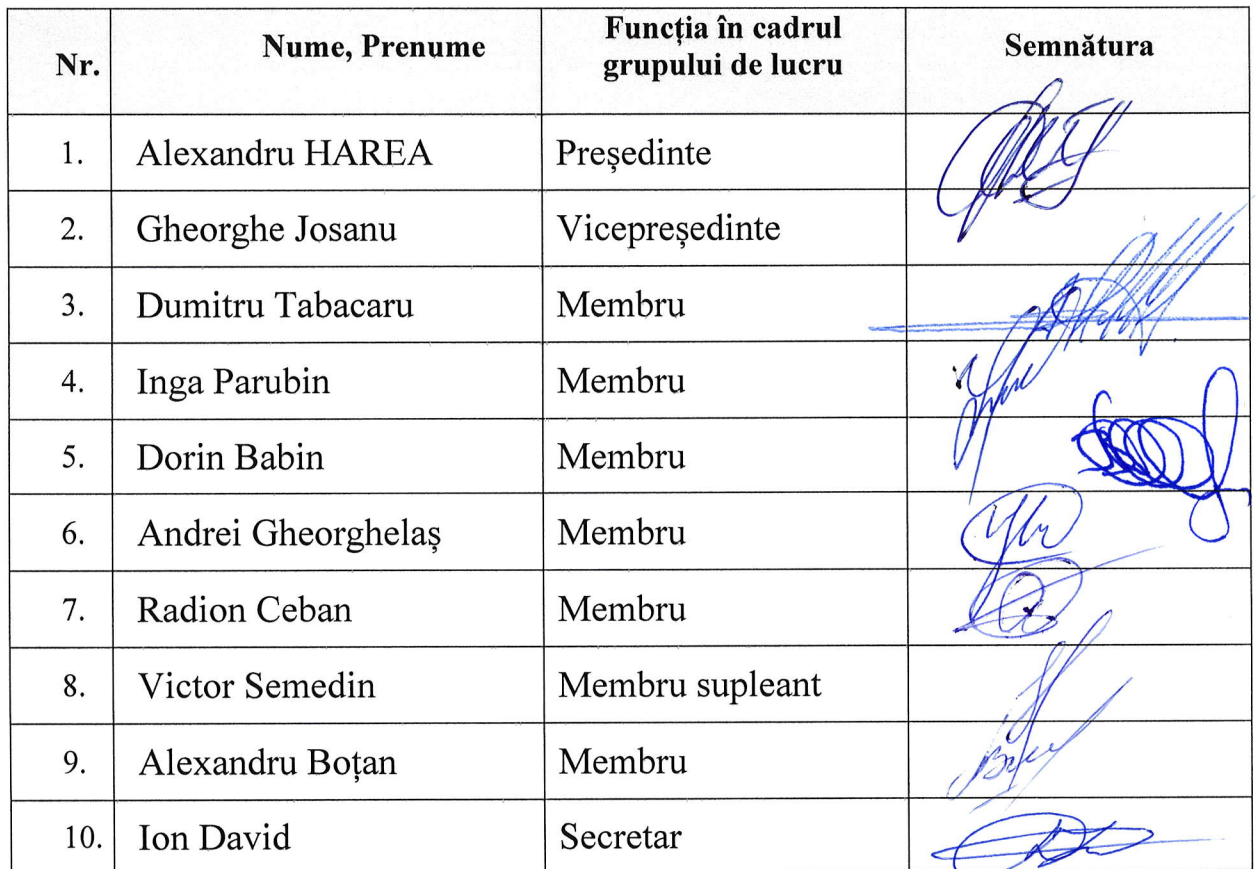 Nr. Nume, Prenume Funcția în cadrul grupului de lucru Semnătura
1. Alexandru HAREA Președinte
2. Gheorghe Josanu Vicepreședinte
3. Dumitru Tabacaru Membru
4. Inga Parubin Membru
5. Dorin Babin Membru
6. Andrei Gheorghelaș Membru
7. Radion Ceban Membru
8. Victor Semedin Membru supleant
9. Alexandru Boțan Membru
10. Ion David Secretar